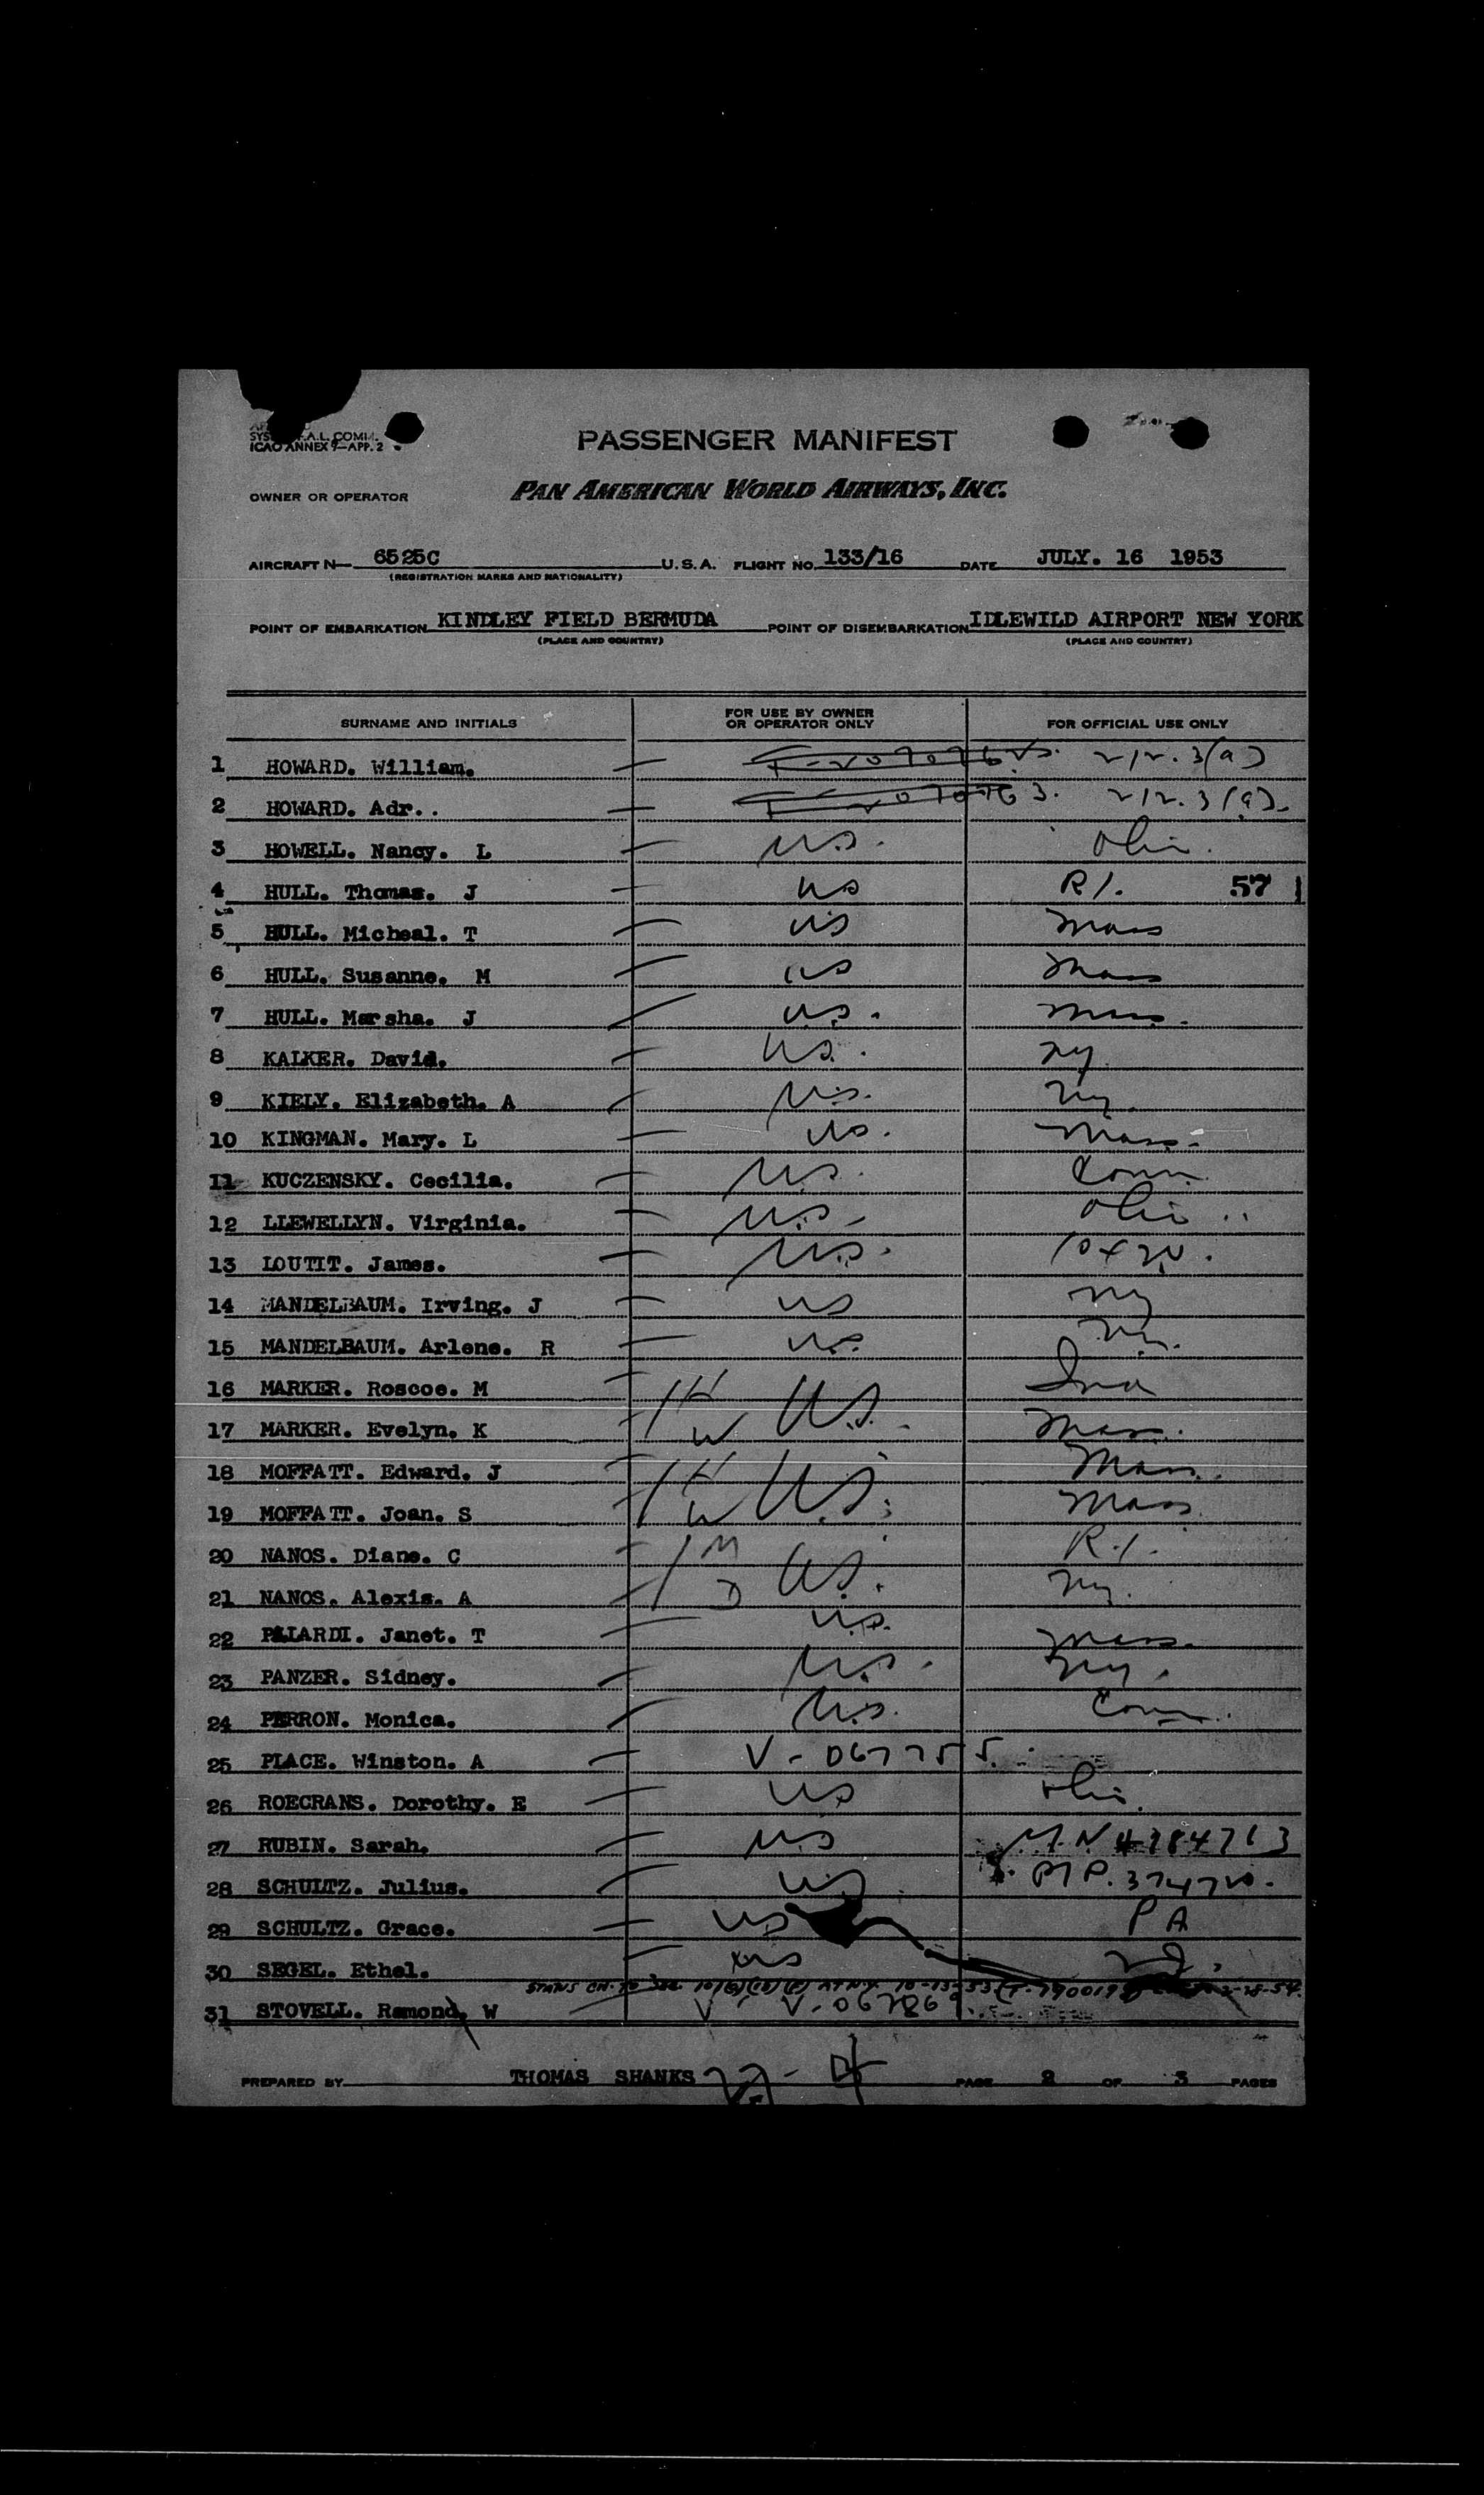 SYS F.A.L. COMM.
ICAO ANNEX 9—APP. 2
PASSENGER MANIFEST
OWNER OR OPERATOR PAN AMERICAN WORLD AIRWAYS, INC.
AIRCRAFT N— 6525C U.S.A. FLIGHT NO. 133/16 DATE JULY. 16 1953
(REGISTRATION MARKS AND NATIONALITY)
POINT OF EMBARKATION KINDLEY FIELD BERMUDA POINT OF DISEMBARKATION IDLEWILD AIRPORT NEW YORK
(PLACE AND COUNTRY) (PLACE AND COUNTRY)
SURNAME AND INITIALS FOR USE BY OWNER OR OPERATOR ONLY FOR OFFICIAL USE ONLY
1 HOWARD. William. 212.3(a)
2 HOWARD. Adr.. 212.3(a).
3 HOWELL. Nancy. L U.S. Ohio.
4 HULL. Thomas. J US R.I. 57
5 HULL. Micheal. T US Mass
6 HULL. Susanne. M US Mass
7 HULL. Marsha. J U.S. Mass.
8 KALKER. David. U.S. NY
9 KIELY. Elizabeth. A U.S. NY.
10 KINGMAN. Mary. L US. Mass.
11 KUCZENSKY. Cecilia. U.S. Conn
12 LLEWELLYN. Virginia. U.S. Ohio
13 LOUTIT. James. U.S.
14 MANDELBAUM. Irving. J US NY
15 MANDELBAUM. Arlene. R U.S. NY.
16 MARKER. Roscoe. M H U.S. Ind
17 MARKER. Evelyn. K W Mass.
18 MOFFATT. Edward. J H U.S. Mass.
19 MOFFATT. Joan. S W Mass
20 NANOS. Diane. C M U.S. R.I.
21 NANOS. Alexis. A D NY.
22 PALARDI. Janet. T U.S. Mass.
23 PANZER. Sidney. U.S. NY.
24 PERRON. Monica. U.S. Conn.
25 PLACE. Winston. A V-067755.
26 ROECRANS. Dorothy. E US Ohio.
27 RUBIN. Sarah. US
28 SCHULTZ. Julius. US
29 SCHULTZ. Grace. US PA
30 SEGEL. Ethel. US
31 STOVELL. Ramond, W
PREPARED BY THOMAS SHANKS PAGE 2 OF 3 PAGES